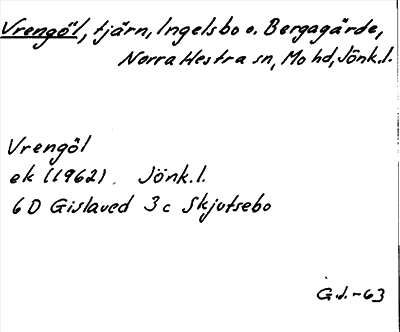 Vrengöl, tjärn, Ingelsbo o. Bergagärde,
Norra Hestra sn, Mo hd, Jönk.l.
Vrengöl
ek (1962). Jönk.l.
6D Gislaved 3c Skjutsebo
G.J.-63